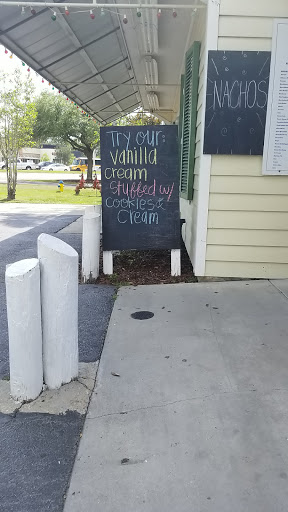 Try our:
vanilla
cream
stuffed w/
cookies &
cream
NACHOS